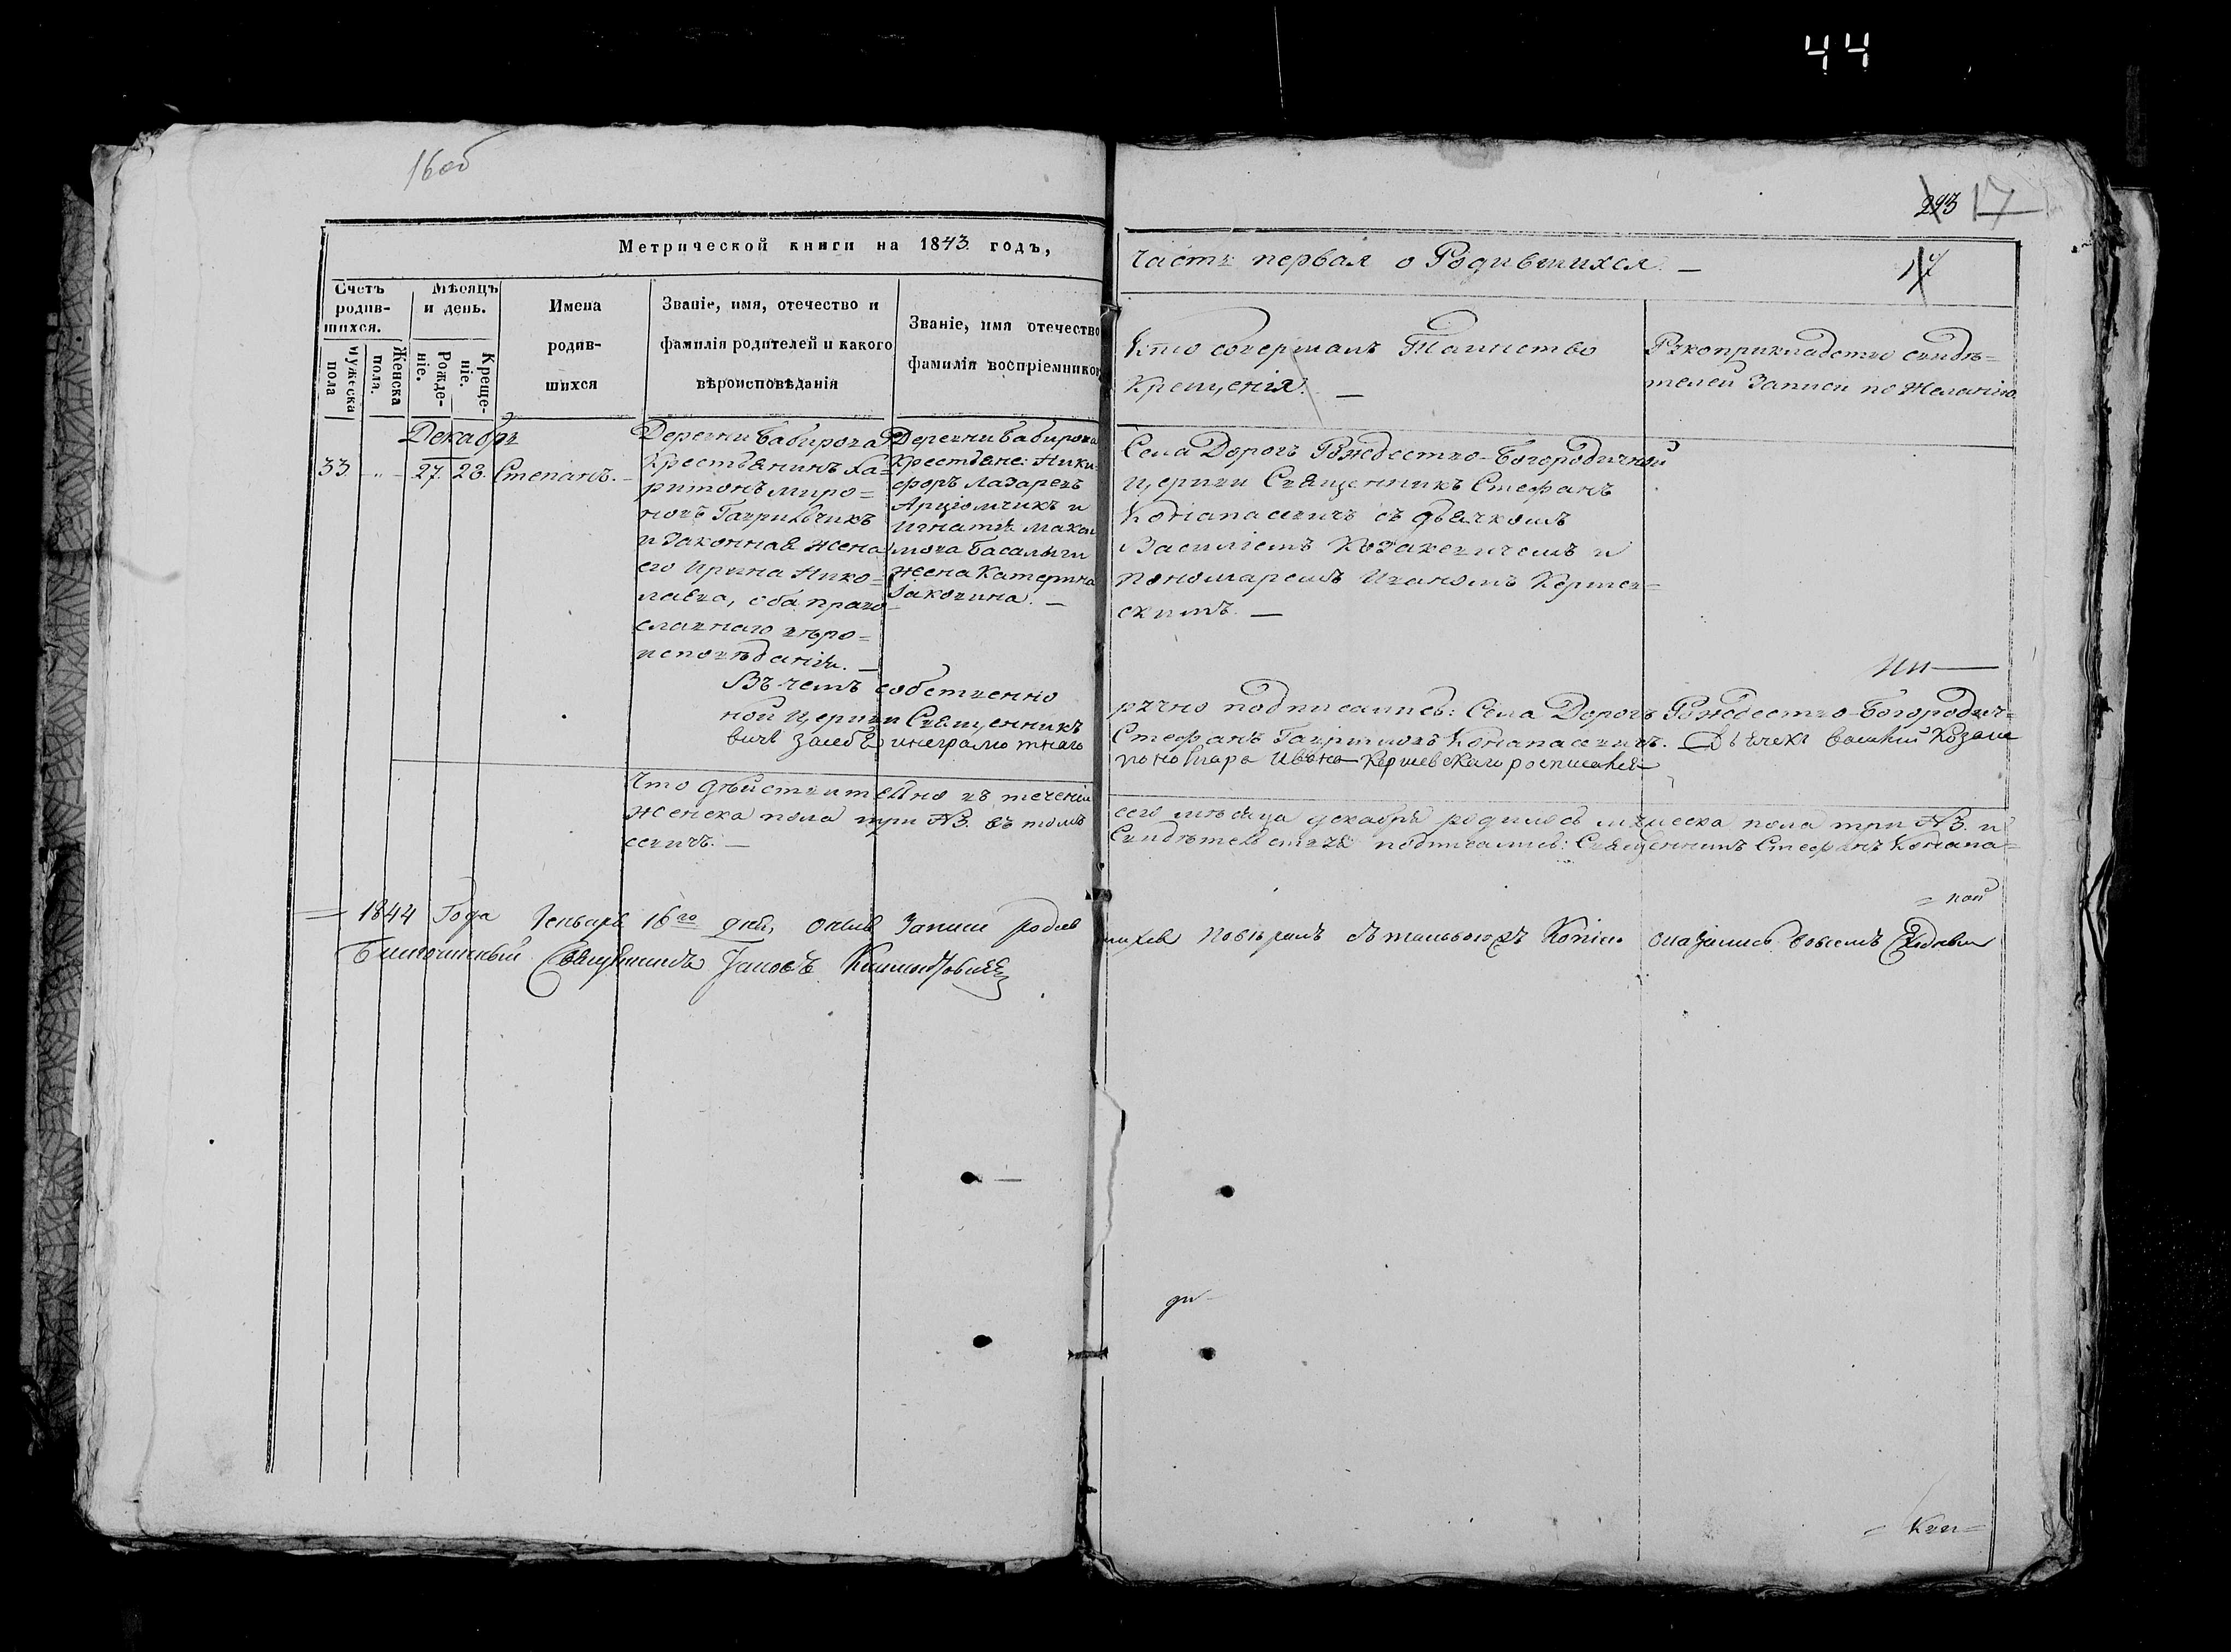 44
16об
293 17
Метрической книги на 1843 годъ,
Часть первая о Родившихся. —
17
Счетъ родив-
шихся.
Мужеска пола
Женска пола.
Мѣсяцъ и день.
Рожде-
ніе.
Креще-
ніе.
Имена
родив-
шихся
Званіе, имя, отечество и
фамилія родителей и какого
вѣроисповѣданія
Званіе, имя отечество
фамилія воспріемников
Кто совершалъ Таинство
Крещенія. —
Рукоприкладство свидѣ=
телей Записи по Желанію.
Декабрь
33. - „ - 27. 28. Степанъ. -
Деревни Бабирова
Крестьянинъ Ха=
ритонъ Миро=
новъ Гаврильчикъ
и Законная жена
его Ирина Нико=
лаева, оба право=
славнаго вѣро=
исповѣданія. —
Деревни Бабирова
Крестьяне: Ники-
форъ Лазаревъ
Арціомчикъ и
Игнатія Макси
мова Басалыги
жена Катерина
Іаковина. —
Села Дорогъ Рождество-Богородичной
церкви Священникъ Стефанъ
Конапасевичъ съ дьячкомъ
Василіемъ Козакевичемъ и
пономаремъ Иваномъ Коржев=
скимъ. —
Въ чемъ собственно
ручно подписались: Села Дорогъ Рождество-Богородич=
ной Церкви Священникъ
Стефанъ Гавриловъ Конапасевичъ. Дьячекъ Василій Козаке
вичъ за себя и неграмотнаго
пономара Ивана Коржевскаго росписался
Что действительно въ теченіи
сего мѣсяца декабря родилось мужеска пола три №3. и
женска пола три №3. въ томъ
Свидѣтельствуя подписались: Священникъ Стефанъ Конапа=
севичъ. —
= 1844 Года Генваря 16го дня, оные Записи родив
шихся повѣрялъ съ таковою жъ Копіею оказались во всемъ сходны
Священникъ Іаковъ